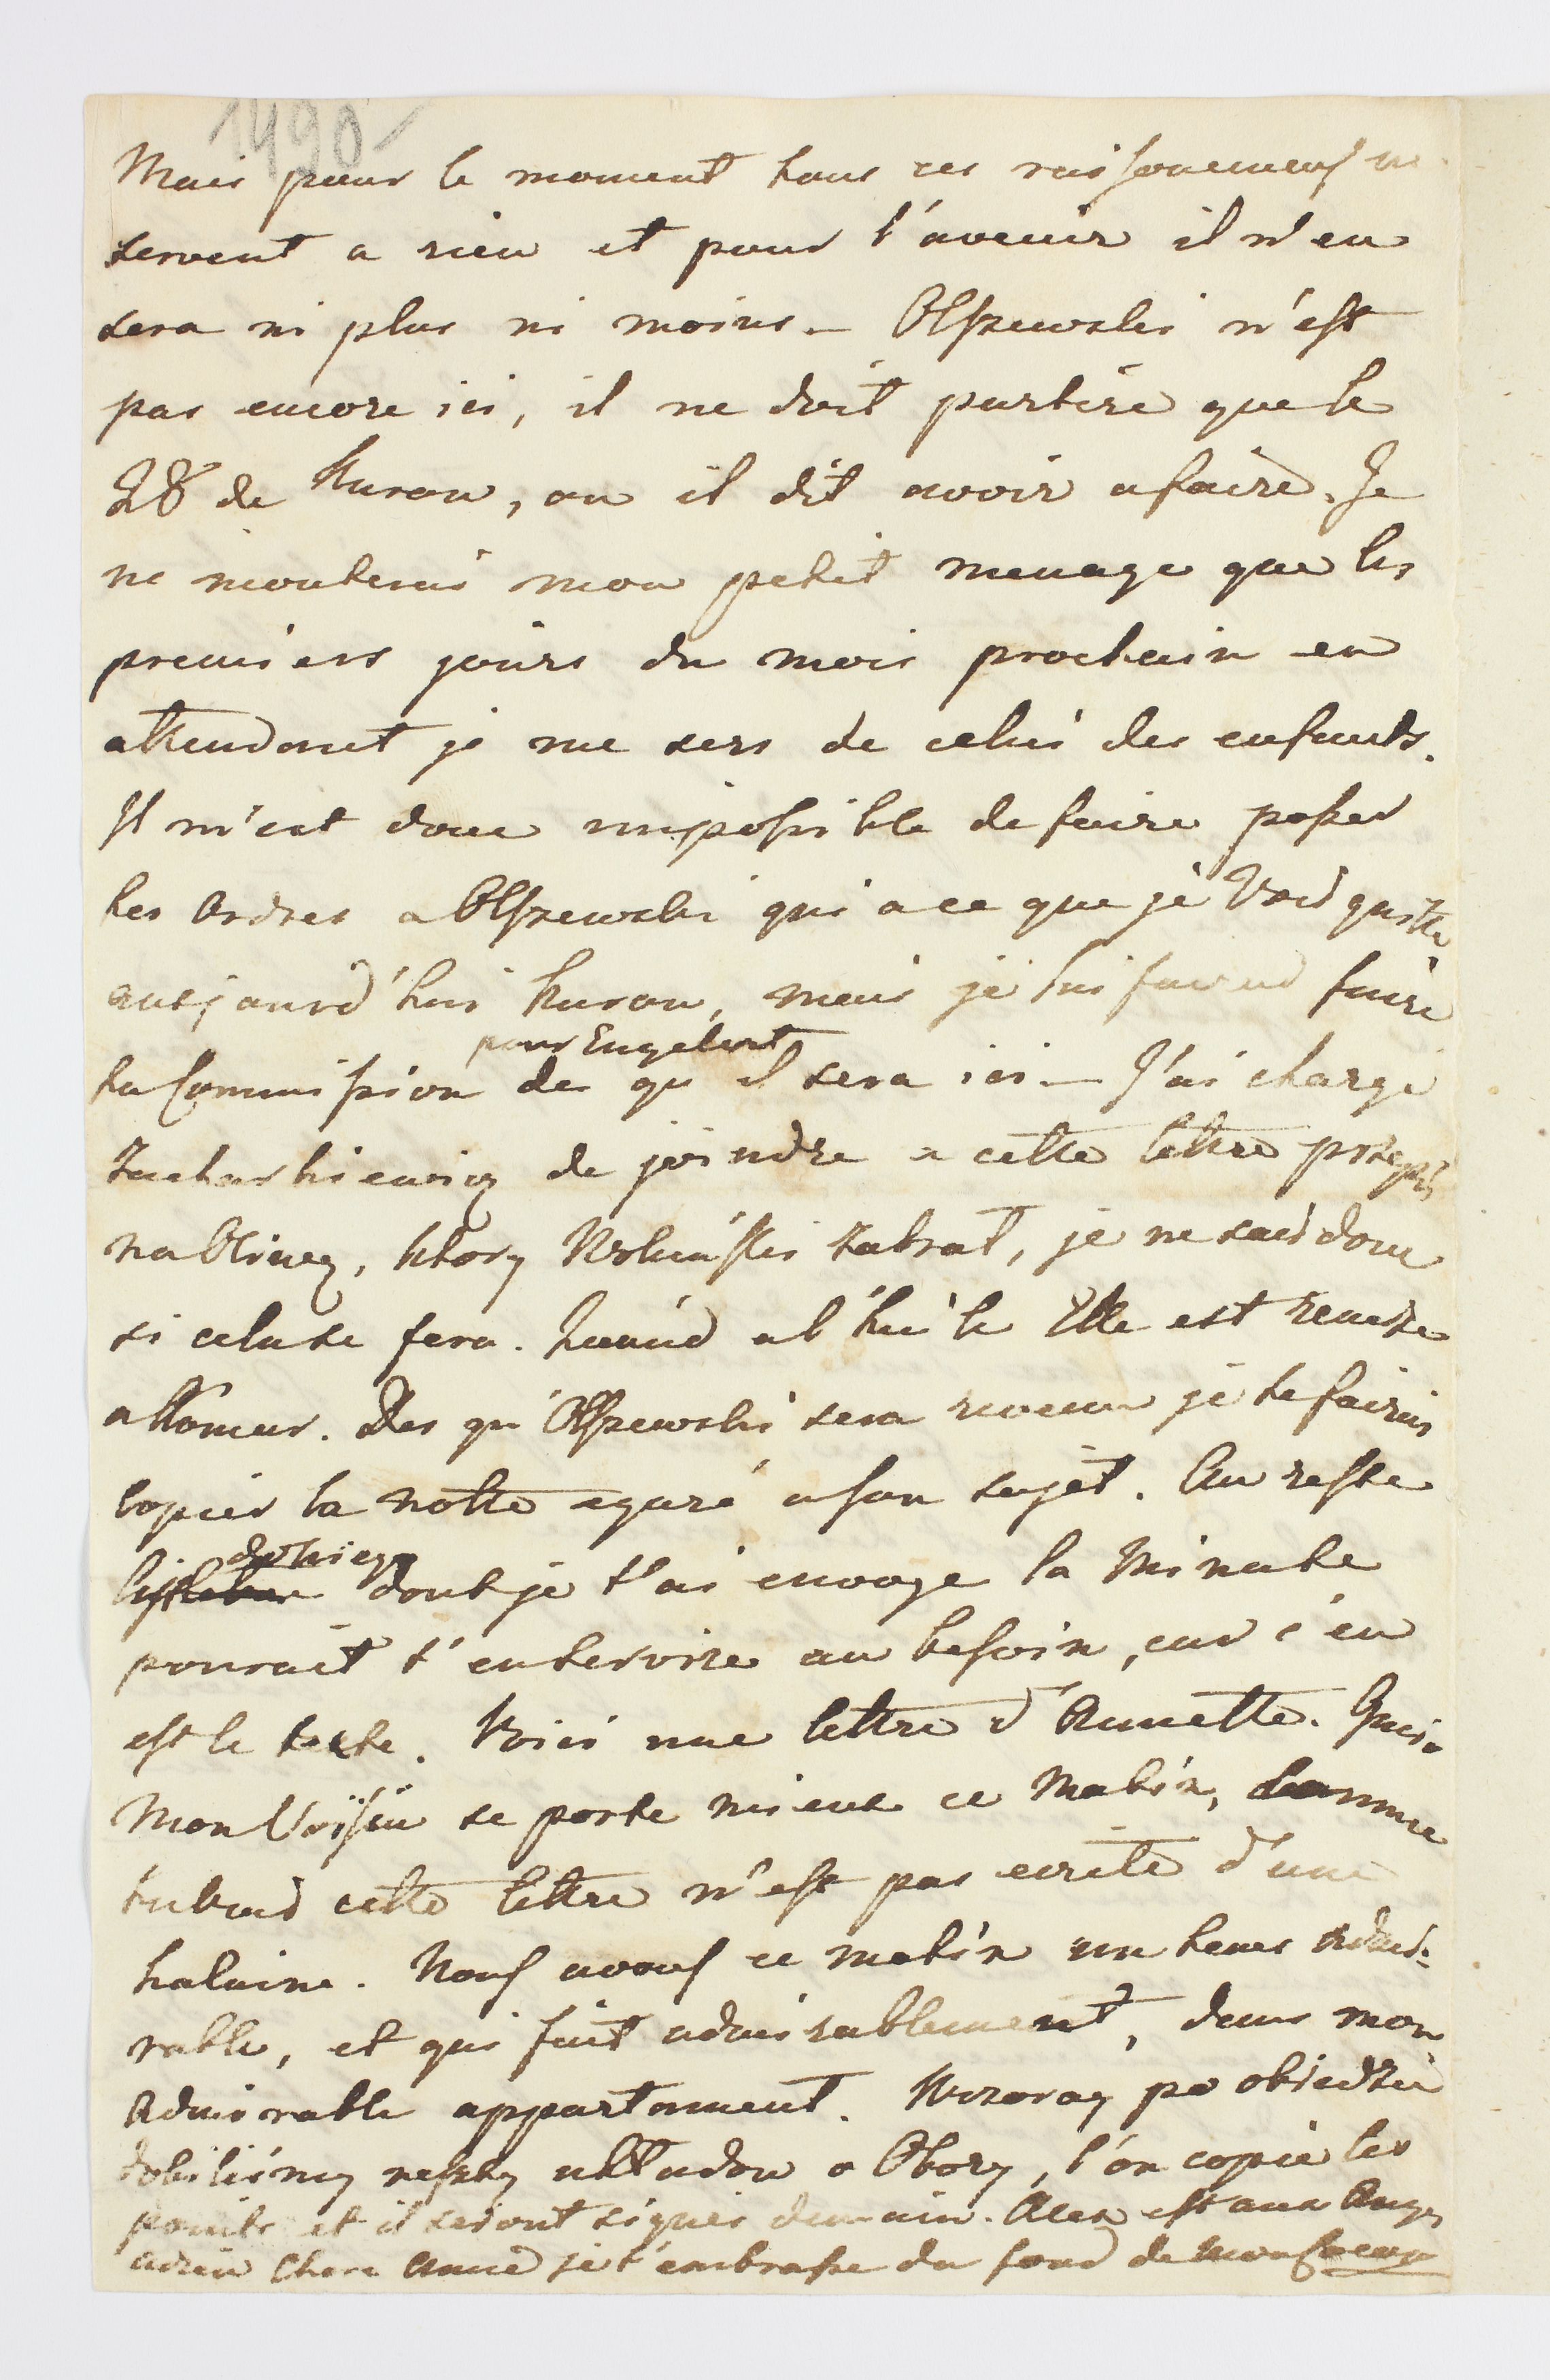 1490
Mais pour le moment tous ces raisonemens ne
servent a rien et pour l'avenir il n'en
sera ni plus ni moins. — Olszewski n'est
pas encore ici, il ne doit partire que le
28 de Kurow, ou il dit avoir a faire. Je
ne monterai mon petit menage que les
premiers jours du mois prochain en
attendant je me sers de celui des enfants.
Il m'est donc impossible de faire passer
tes Ordres a Olszewski qui a ce que je Vois quitte
aujourd'hui Kurow, mais je lui faires faire
ta Commission pour Engelbert des qu'il sera ici — J'ai chargé
Zacharkiewicz de joindre a cette lettre przepis
na Oliwę, który Woliński zabrał, je ne sais donc
si cela se fera. Quand a l'huile Elle est remise
a Stomer. Des qu'Olszewski sera revenu je te fairais
copier la notte egaré a son sujet. Au reste
dont je t'ai envoye la Minute
pourait t'en servire au besoin, car c'en
est le texte. Voici une lettre d'Annette.
Mon Voisin se porte mieux ce Matin, comme
tu vois cette lettre n'est pas ecrite d'une
halaine. Nous avons ce matin un tems admi-
rable, et qui fait admirablement, dans mon
Admirable appartement. Wczoray po obiedzie
zrobiliśmy reszty układow o Obory, l'on copie les
points et il seront signés demain. Alex est aux Anges
adieu Chere Amie je t'embrasse du fond de mon Coeur